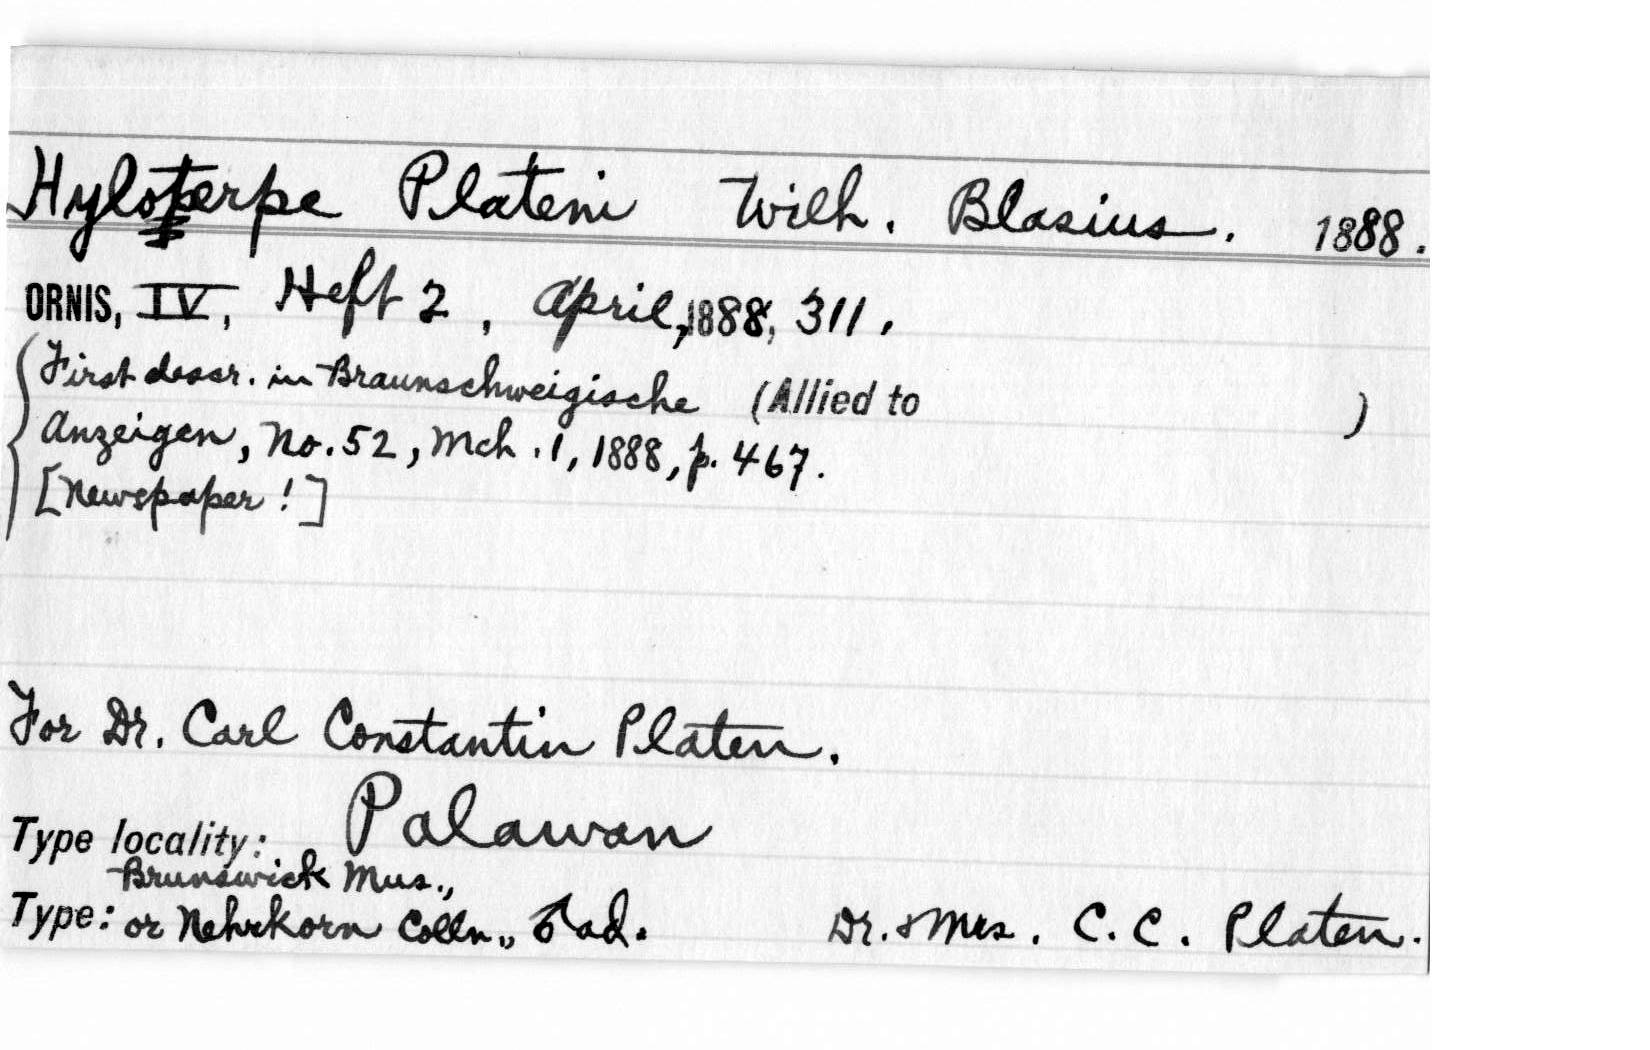 Hyloterpe Plateni Wilh. Blasius. 1888.
ORNIS, IV, Heft 2, April, 1888, 311.
First descr. in Braunschweigische (Allied to )
Anzeigen, No. 52, Mch. 1, 1888, p. 467.
[Newspaper!]
For Dr. Carl Constantin Platen.
Type locality: Palawan
Brunswick Mus.,
Type: or Nehrkorn Colln., ♂ ad. Dr. & Mrs. C. C. Platen.